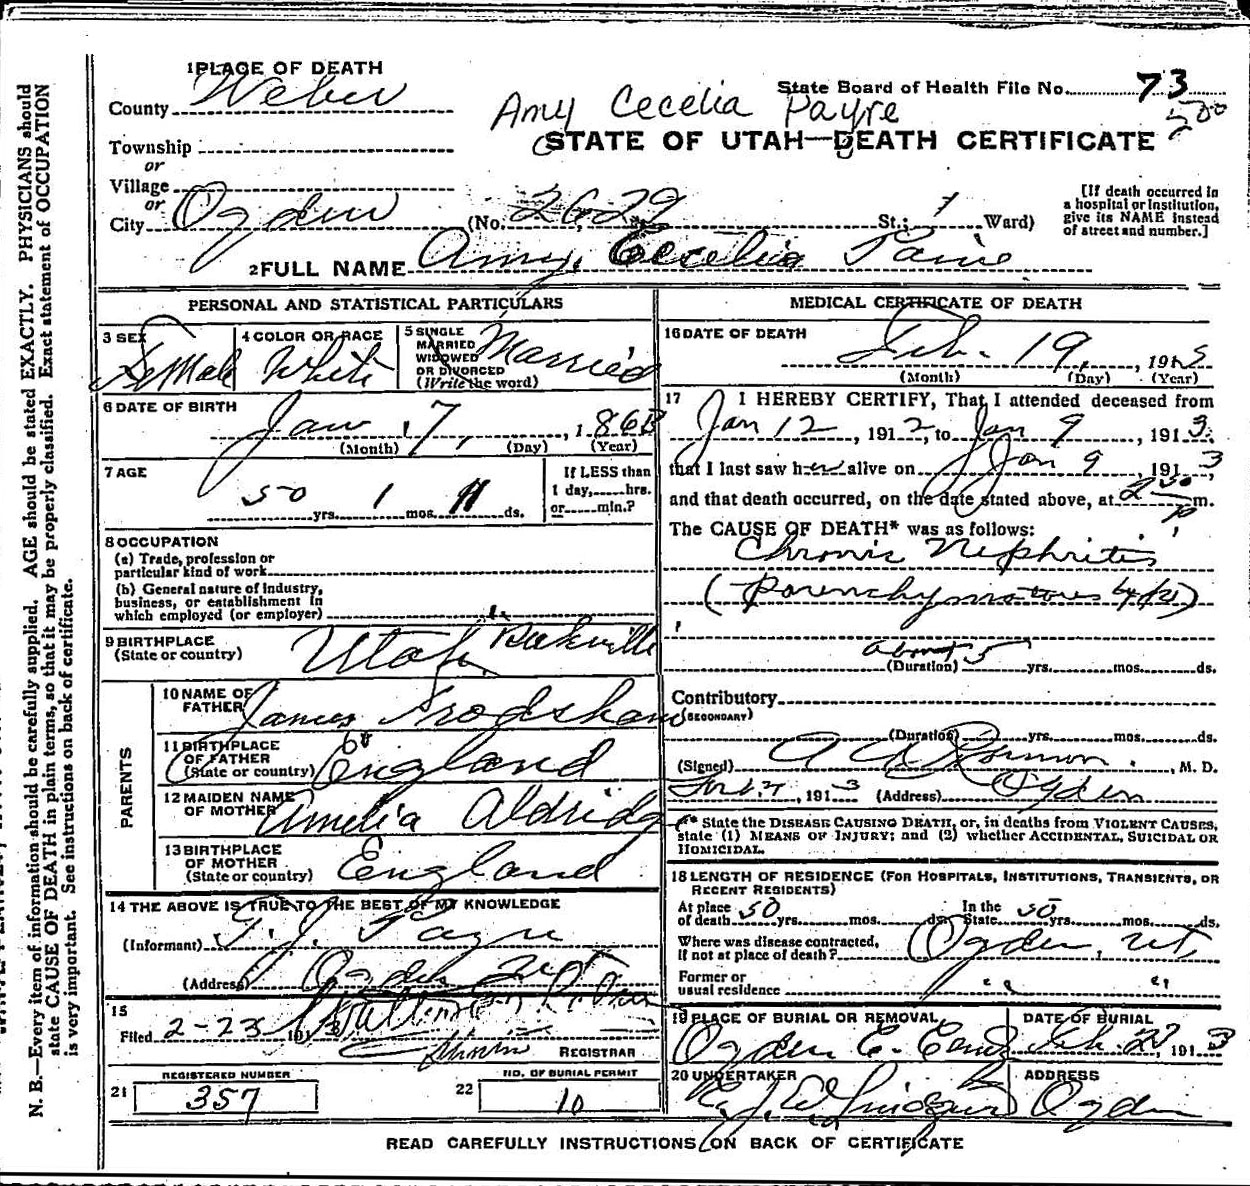 1 PLACE OF DEATH
County Weber
State Board of Health File No. 73
Amy Cecelia Payne
Township
or
Village
or
City Ogden (No. 2629 St.; Ward)
STATE OF UTAH—DEATH CERTIFICATE
[If death occurred in
a hospital or institution,
give its NAME instead
of street and number.]
2 FULL NAME Amy Cecelia Paine
PERSONAL AND STATISTICAL PARTICULARS
3 SEX Female
4 COLOR OR RACE White
5 SINGLE
MARRIED
WIDOWED
OR DIVORCED
(Write the word) Married
6 DATE OF BIRTH
Jan 7, 1863
(Month) (Day) (Year)
7 AGE
50 yrs. 1 mos. 11 ds.
If LESS than
1 day,......hrs.
or......min.?
8 OCCUPATION
(a) Trade, profession or
particular kind of work
(b) General nature of industry,
business, or establishment in
which employed (or employer)
9 BIRTHPLACE
(State or country) Utah
PARENTS
10 NAME OF
FATHER James
11 BIRTHPLACE
OF FATHER
(State or country) England
12 MAIDEN NAME
OF MOTHER Amelia Aldridge
13 BIRTHPLACE
OF MOTHER
(State or country) England
14 THE ABOVE IS TRUE TO THE BEST OF MY KNOWLEDGE
(Informant) T. J. Payne
(Address) Ogden Ut
15
Filed 2-23 191
REGISTRAR
REGISTERED NUMBER
21 357
NO. OF BURIAL PERMIT
22 10
MEDICAL CERTIFICATE OF DEATH
16 DATE OF DEATH
Feb. 19, 191
(Month) (Day) (Year)
17 I HEREBY CERTIFY, That I attended deceased from
Jan 12, 1912, to Jan 9, 1913.
that I last saw her alive on Jan 9, 1913
and that death occurred, on the date stated above, at 2 30 P m.
The CAUSE OF DEATH* was as follows:
Chronic Nephritis
(Parenchymatous type)
about 5
(Duration) yrs. mos. ds.
Contributory
(SECONDARY)
(Duration) yrs. mos. ds.
(Signed) , M. D.
, 1913 (Address) Ogden
* State the DISEASE CAUSING DEATH, or, in deaths from VIOLENT CAUSES,
state (1) MEANS OF INJURY; and (2) whether ACCIDENTAL, SUICIDAL OR
HOMICIDAL.
18 LENGTH OF RESIDENCE (FOR HOSPITALS, INSTITUTIONS, TRANSIENTS, OR
RECENT RESIDENTS)
At place
of death 50 yrs. mos. ds.
In the
State 50 yrs. mos. ds.
Where was disease contracted,
if not at place of death? Ogden, Ut
Former or
usual residence " "
19 PLACE OF BURIAL OR REMOVAL
Ogden C. Cem
DATE OF BURIAL
Feb. 23, 1913
20 UNDERTAKER
ADDRESS
Ogden
READ CAREFULLY INSTRUCTIONS ON BACK OF CERTIFICATE
N. B.—Every item of information should be carefully supplied. AGE should be stated EXACTLY. PHYSICIANS should
state CAUSE OF DEATH in plain terms, so that it may be properly classified. Exact statement of OCCUPATION
is very important. See instructions on back of certificate.